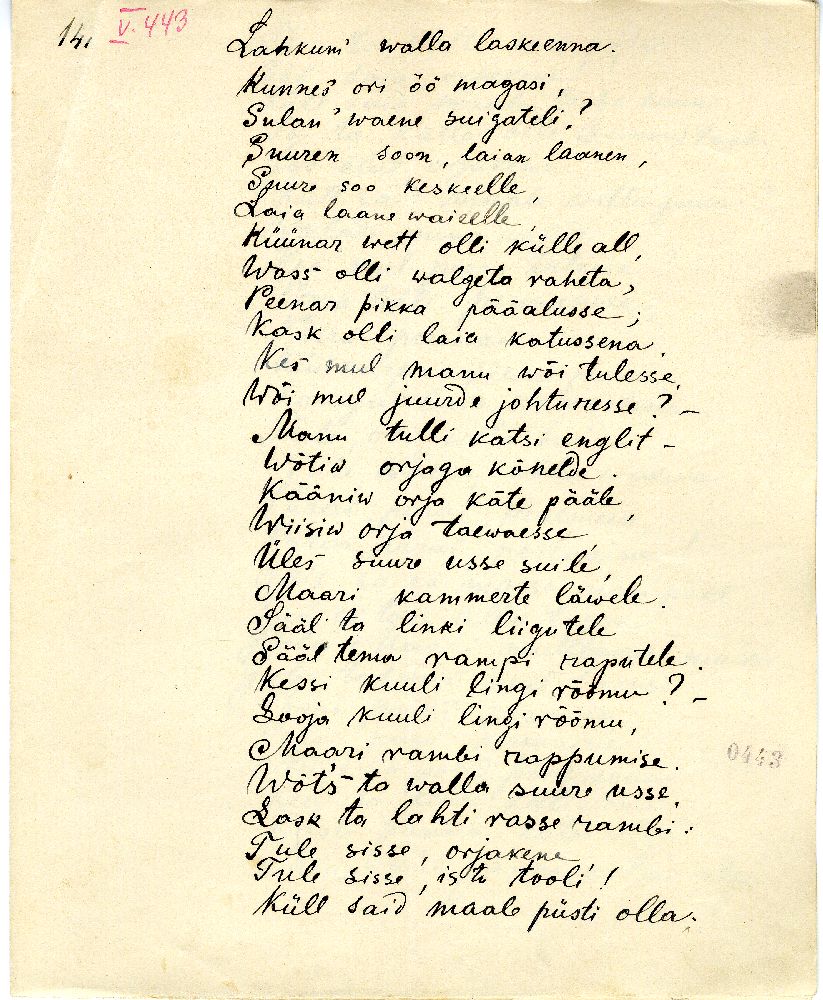 14. V. 443
Lahkuni walla laskeenna.
Kunnes ori öö magasi,
Sulan' waene suigateli?
Suuren soon, laian laanen,
Suure soo keskeelle,
Laia laane waieelle,
Küünar wett olli külle all,
Wass olli walgeta raheta,
Peenar pikka pääalusse;
Kask olli laia katussena.
Kes mul manu wõi tulesse,
Wõi mul juurde johtunesse? –
Manu tulli katsi englit –
Wõtiw orjaga kõnelde.
Kääniw orja käte pääle,
Wiisiw orja taewaesse,
Üles suure usse suile,
Maari kammerte läwele.
Sääl ta linki liigutele
Sääl tema rampi raputele.
Kessi kuuli lingi rõõmu? –
Looja kuuli lingi rõõmu,
Maari rambi rappumise.
0443
Wõts ta walla suure usse,
Lask ta lahti rasse rambi:
Tule sisse, orjakene
Tule sisse, istu tooli!
Küll said maale püsti olla.